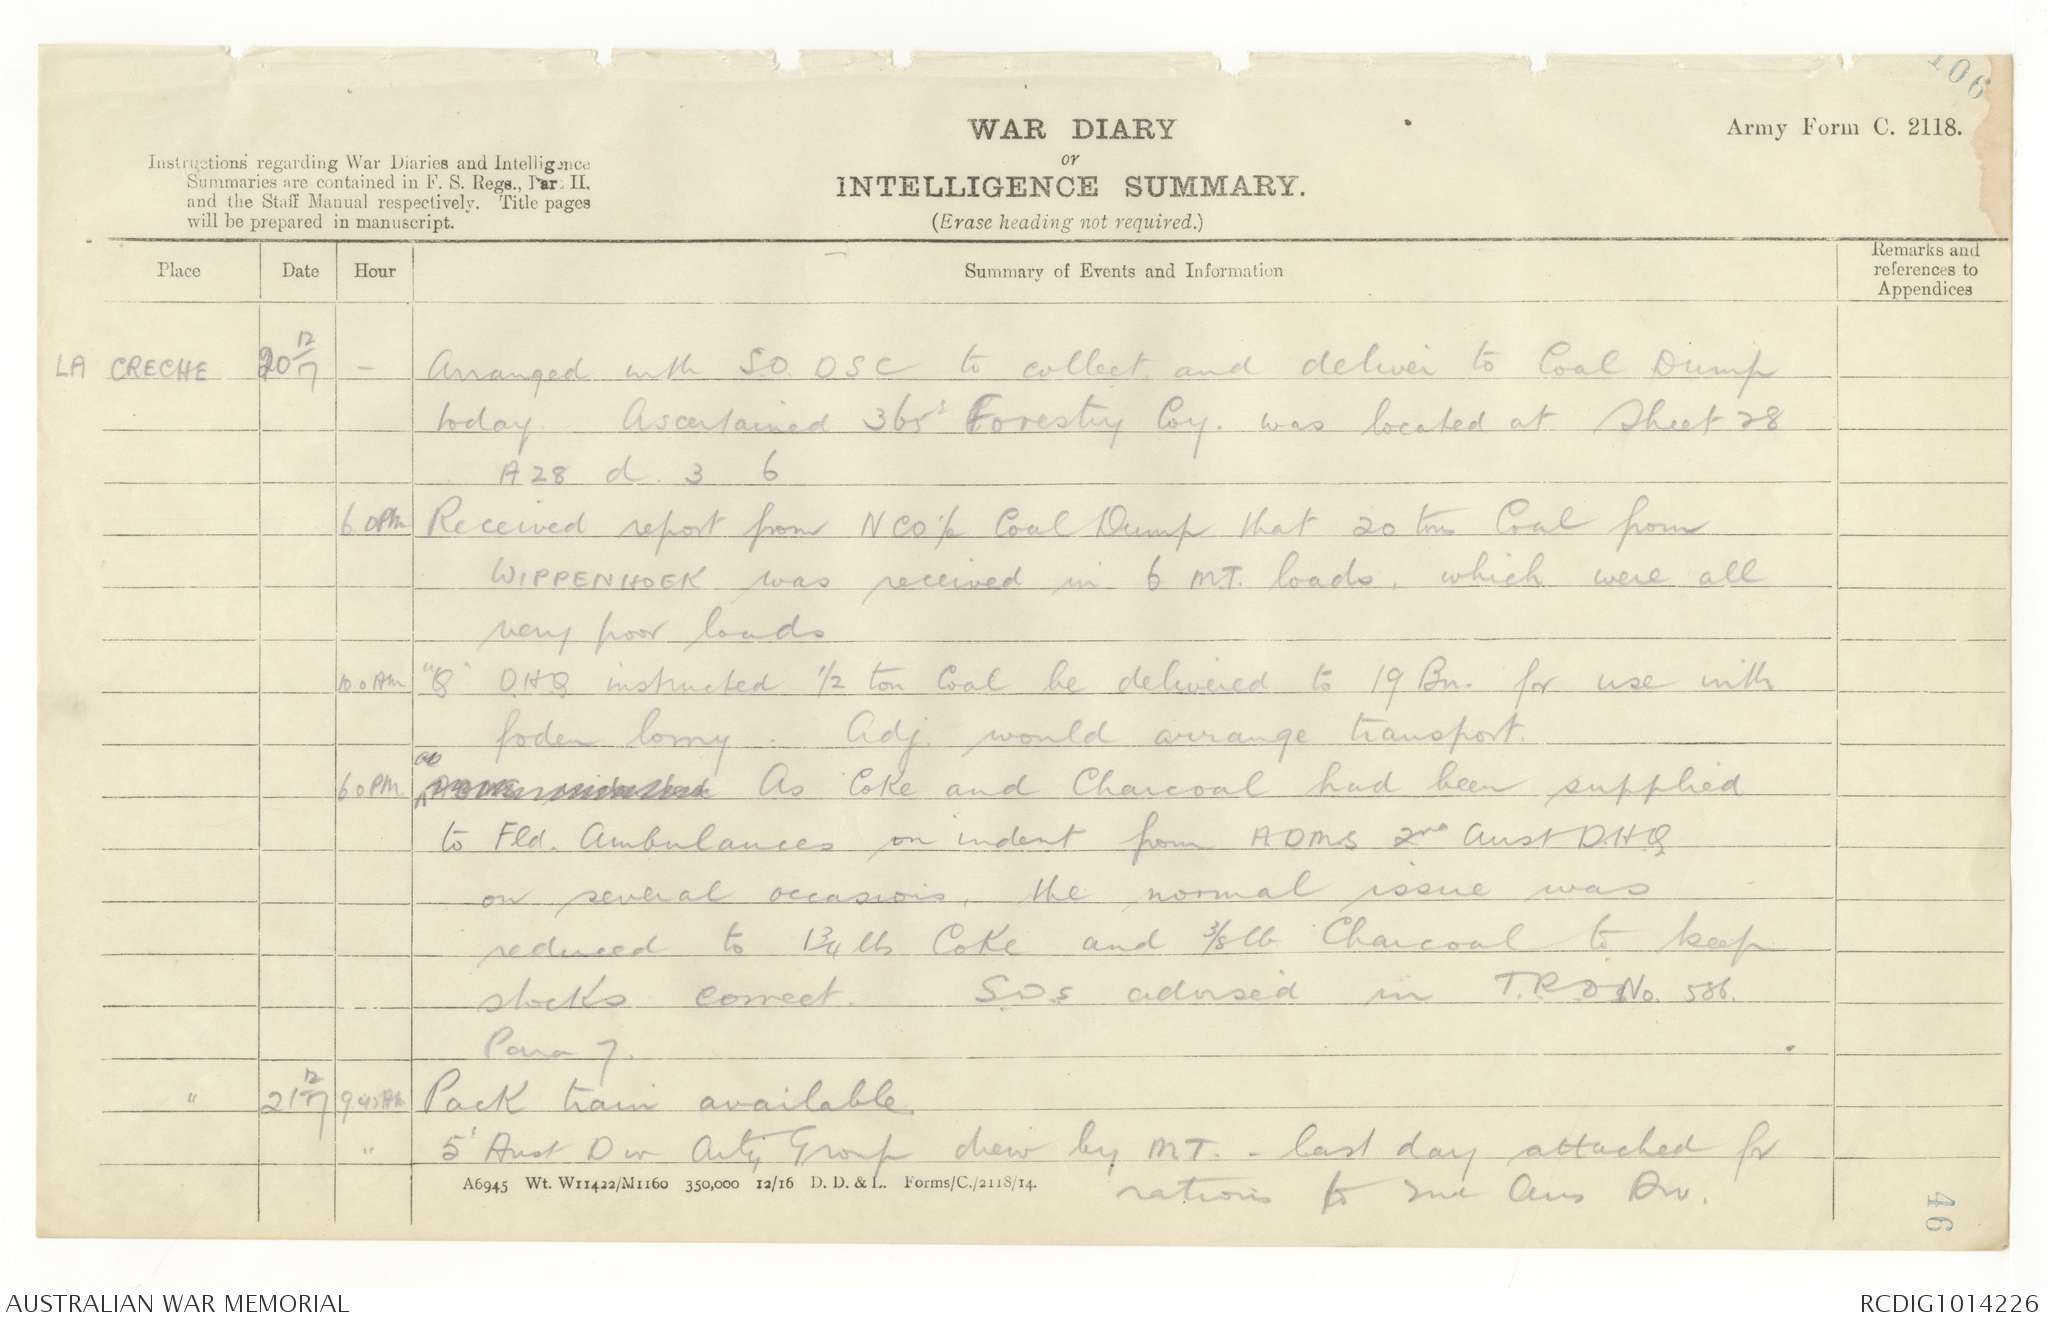 106
WAR DIARY
or
INTELLIGENCE SUMMARY.
(Erase heading not required.)
Army Form C. 2118.
Instructions regarding War Diaries and Intelligence
Summaries are contained in F. S. Regs., Part II.
and the Staff Manual respectively. Title pages
will be prepared in manuscript.
Place Date Hour Summary of Events and Information Remarks and references to Appendices
LA CRECHE 20 12/17 - Arranged with S.O. DSC to collect and deliver to Coal Dump
today. Ascertained 365 Forestry Coy. was located at Sheet 28
A 28 d. 3 6
6.0PM Received report from NCO i/c Coal Dump that 20 tons Coal from
WIPPENHOEK was received in 6 M.T. loads, which were all
very poor loads
10.0 AM "Q" DHQ instructed 1/2 ton Coal be delivered to 19 Bn. for use with
foden lorry. Adj. would arrange transport.
6 0 PM. As Coke and Charcoal had been supplied
to Fld. Ambulances on indent from ADMS 2nd Aust D.H.Q
on several occasions, the normal issue was
reduced to 1 3/4 lb Coke and 3/8 lb Charcoal to keep
stocks correct. S.O.s advised in T.R.O No. 586.
Para 7.
" 21 12/17 9.45AM Pack train available.
" 5' Aust Div Arty Group drew by M.T. - last day attached for
rations to 2nd Aus Div.
A6945 Wt. W11422/M1160 350,000 12/16 D. D. & L. Forms/C./2118/14.
46
AUSTRALIAN WAR MEMORIAL
RCDIG1014226